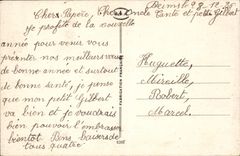 Reims le 28.12.30
Chers Pépère, Cher Oncle Tante et petit Gilbert
je profite de la nouvelle
année pour venir vous
présenter nos meilleurs vœux
de bonne année et surtout
de bonne santé, je pense
que mon petit Gilbert
va bien et je voudrais
bien pouvoir l'embrasser
bientôt. Bons baisers de
tous quatre
Huguette,
Mireille,
Robert,
Marcel.
FABRICATION FRANÇAISE